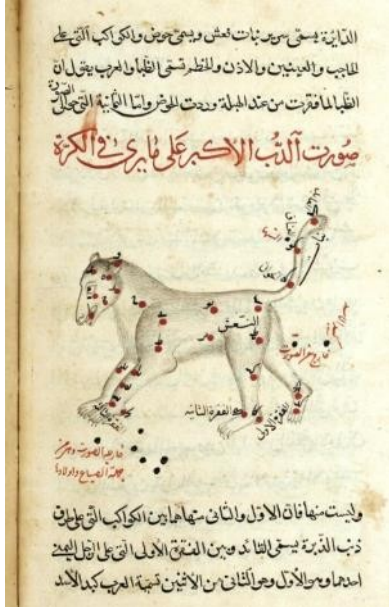 الدايرة يسمى سرير بنات نعش ويسمى حوض والكواكب التى على
الحاجب والعينين والاذن والخطم تسمى الظبا والعرب يقول ان
الظبا لما قفزت من عند الهلبة وردت الحوض واما الثمانية التى حوالى
الصورة
صورت الدب الاكبر على ما يرى فى الكرة
النعش
خارج من الصورت
القفزة الثانيه
القفزة الاولى
القفزة الثالثه
خارج الصورت
وليست منها فان الاول والثانى منها هما بين الكواكب التى على طرف
ذنب الدب يسمى القائد وبين القفزة الاولى التى على الرجل اليمنى
احدهما وهو الاول وهو الثانى من الاثنين تسمية العرب كبد الاسد